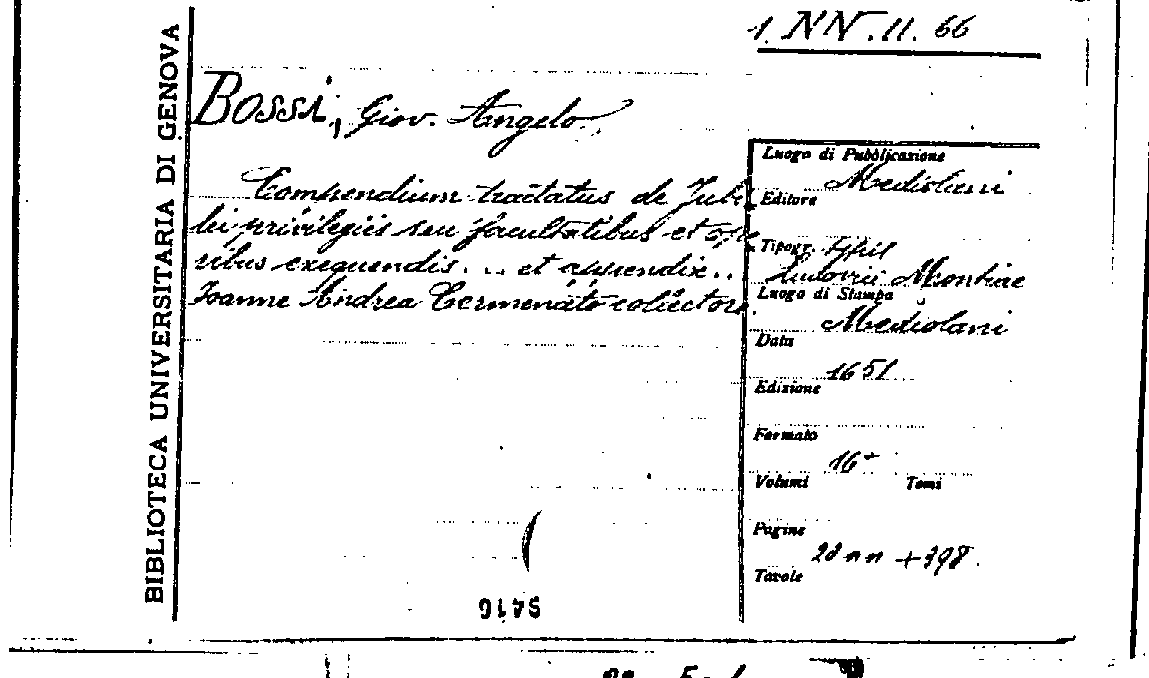 1. NN. II. 66
BIBLIOTECA UNIVERSITARIA DI GENOVA
Bossi, Giov. Angelo.
Compendium tractatus de Jubi
lei privilegiis seu facultatibus et ope
ribus exequendis... et appendix..
Joanne Andrea Cermenato collectore.
Luogo di Pubblicazione
Mediolani
Editore
Tipogr. typis
Ludovici Montiae
Luogo di Stampa
Mediolani
Data
1651
Edizione
Formato
16°
Volumi Tomi
Pagine
20 nn + 398.
Tavole
9416